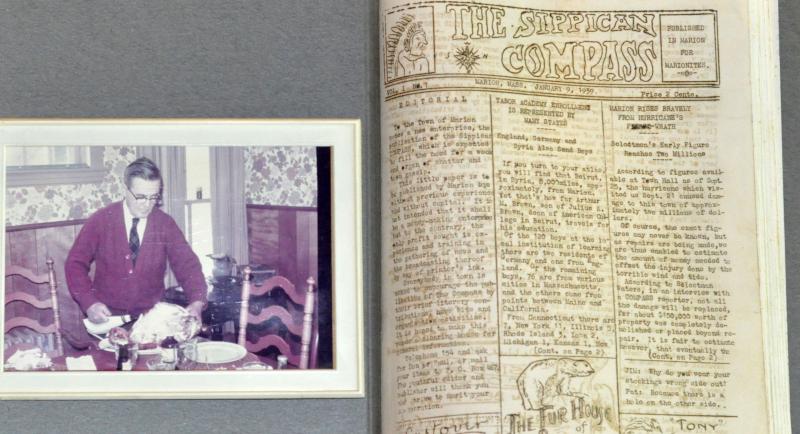 THE SIPPICAN
COMPASS
PUBLISHED
IN MARION
FOR
MARIONITES.
VOL. I No. 7
MARION, MASS. JANUARY 9, 1939.
Price 2 Cents.
EDITORIAL
To the Town of Marion
a new enterprise, the
publication of the Sippican
which is expected
to fill the need for a
an organ of chatter and
gossip.
This little paper is to
be published by Marion boys
without previous experience
and without capital. It is
not intended that it shall
be a money-making enterprise
but to the contrary, the
only profit sought is
experience and training in
the gathering of news and
the broadcasting thereof
by use of printer's ink.
TABOR ACADEMY ENROLLMENT
IS REPRESENTED BY
MANY STATES
England, Germany and
Syria Also Send Boys
If you turn to your atlas
you will find that Beirut,
in Syria, 5,000 miles, ap-
proximately, from Marion.
Yet that's how far Arthur
M. Brown, son of Julius A.
Brown, dean of American Col-
lege in Beirut, travels for
his education.
Of the 120 boys at the lo-
cal institution of learning
there are two residents of
Germany and one from Eng-
land. Of the remaining
boys, 76 are from various
cities in Massachusetts,
and the others come from
points between Maine and
California.
From Connecticut there are
7, New York 11, Illinois 5,
Rhode Island 3, Iowa 2,
Michigan 1, Kansas 1, Now
(Cont. on Page 2)
THE FUR HOUSE
of
MARION RISES BRAVELY
FROM HURRICANE'S
WRATH
Selectmen's Early Figure
Reaches Two Millions
According to figures avail-
able at Town Hall as of Sept.
25, the hurricane which vis-
ited us Sept. 21 caused dam-
age to this town of approx-
imately two millions of dol-
lars.
Of course, the exact fig-
ures may never be known, but
as repairs are being made, we
are thus enabled to estimate
the amount of money needed to
offset the injury done by the
terrible wind and tide.
According to Selectman
Waters, in an interview with
a COMPASS reporter, not all
the damage will be replaced,
for about $150,000 worth of
property was completely de-
molished or placed beyond re-
pair. It is fair to estimate
however, that eventually the
(Cont. on Page 2)
JIM: Why do you wear your
stockings wrong side out?
Pat: Because there is a
hole on the other side..
"TONY"